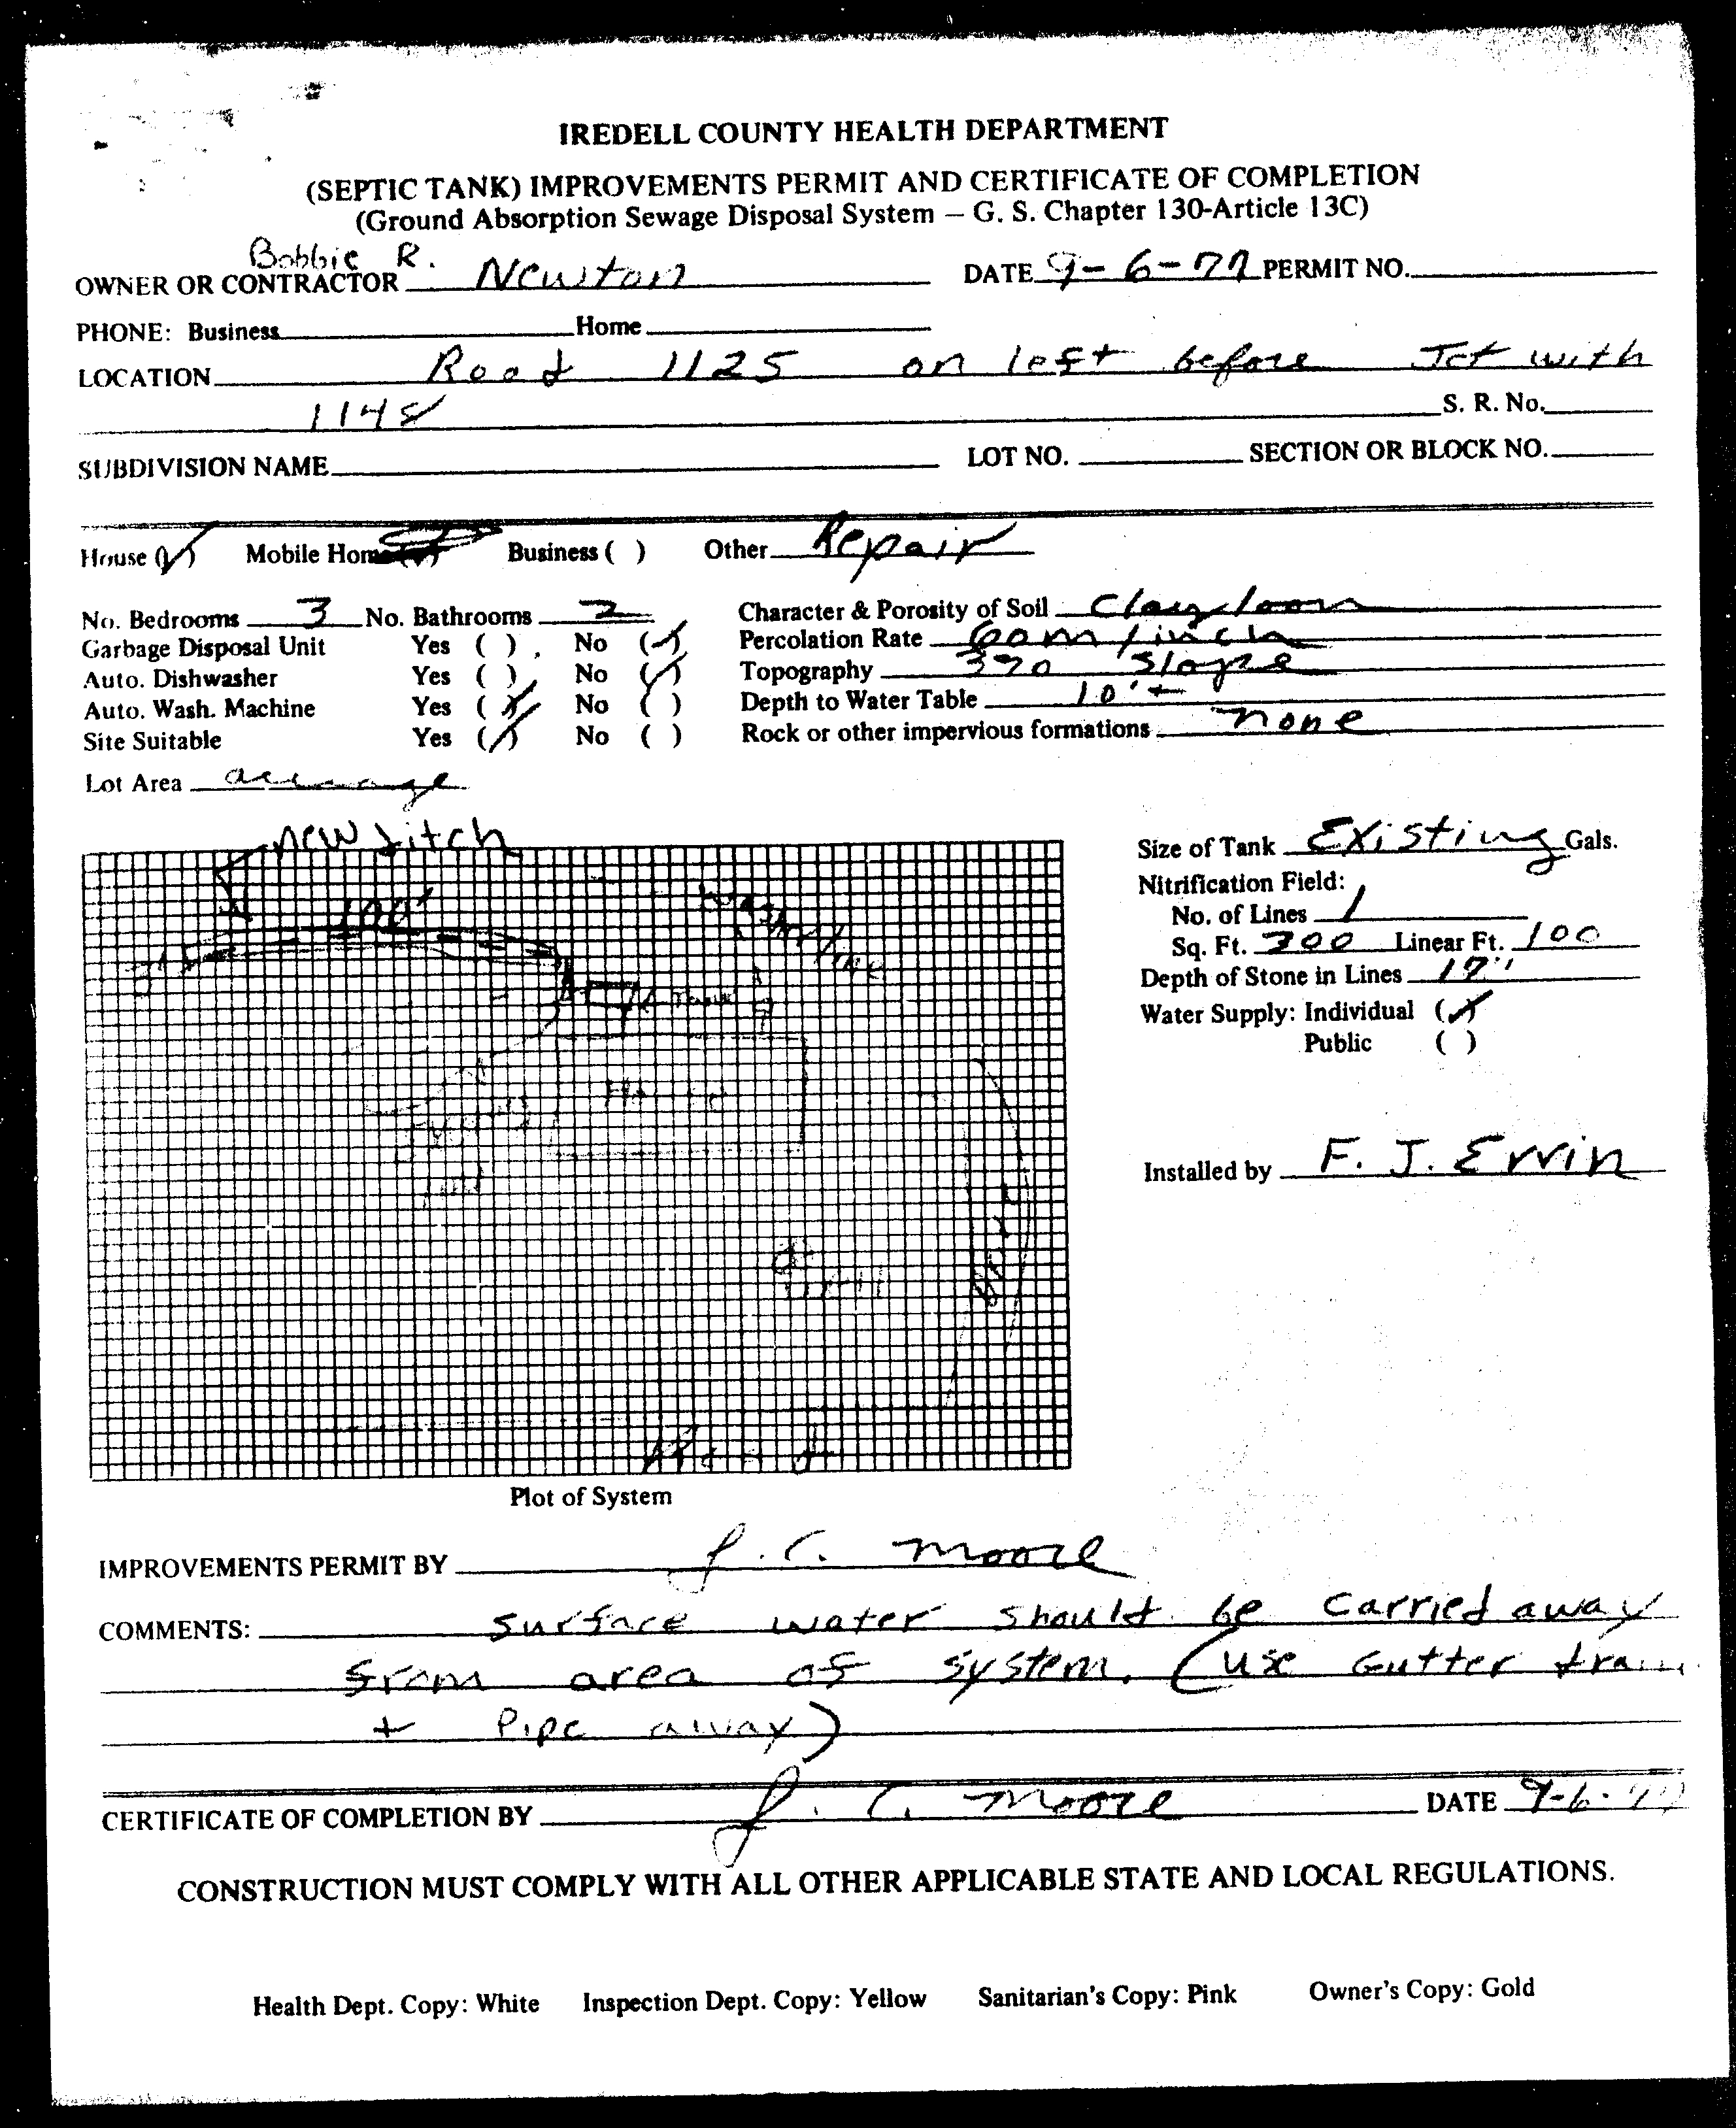 IREDELL COUNTY HEALTH DEPARTMENT
(SEPTIC TANK) IMPROVEMENTS PERMIT AND CERTIFICATE OF COMPLETION
(Ground Absorption Sewage Disposal System – G. S. Chapter 130-Article 13C)
OWNER OR CONTRACTOR Bobbie R. Newton DATE 9-6-77 PERMIT NO.
PHONE: Business Home
LOCATION Road 1125 on left before Jct with
1148 S. R. No.
SUBDIVISION NAME LOT NO. SECTION OR BLOCK NO.
House (✓) Mobile Home Business ( ) Other Repair
No. Bedrooms 3 No. Bathrooms 2 Character & Porosity of Soil Clay loam
Garbage Disposal Unit Yes ( ) No (✓) Percolation Rate 60 m / inch
Auto. Dishwasher Yes ( ) No (✓) Topography 3% Slope
Auto. Wash. Machine Yes (✓) No ( ) Depth to Water Table 10'+
Site Suitable Yes (✓) No ( ) Rock or other impervious formations none
Lot Area acreage
new ditch
100'
3'
Wash line
Tank
House
Drive
Road
Size of Tank Existing Gals.
Nitrification Field:
No. of Lines 1
Sq. Ft. 300 Linear Ft. 100
Depth of Stone in Lines 12"
Water Supply: Individual (✓)
Public ( )
Installed by F. J. Ervin
Plot of System
IMPROVEMENTS PERMIT BY J. C. Moore
COMMENTS: Surface water should be carried away
from area of system. (use Gutter drain
+ Pipe away)
CERTIFICATE OF COMPLETION BY J. C. Moore DATE 9-6-77
CONSTRUCTION MUST COMPLY WITH ALL OTHER APPLICABLE STATE AND LOCAL REGULATIONS.
Health Dept. Copy: White Inspection Dept. Copy: Yellow Sanitarian's Copy: Pink Owner's Copy: Gold